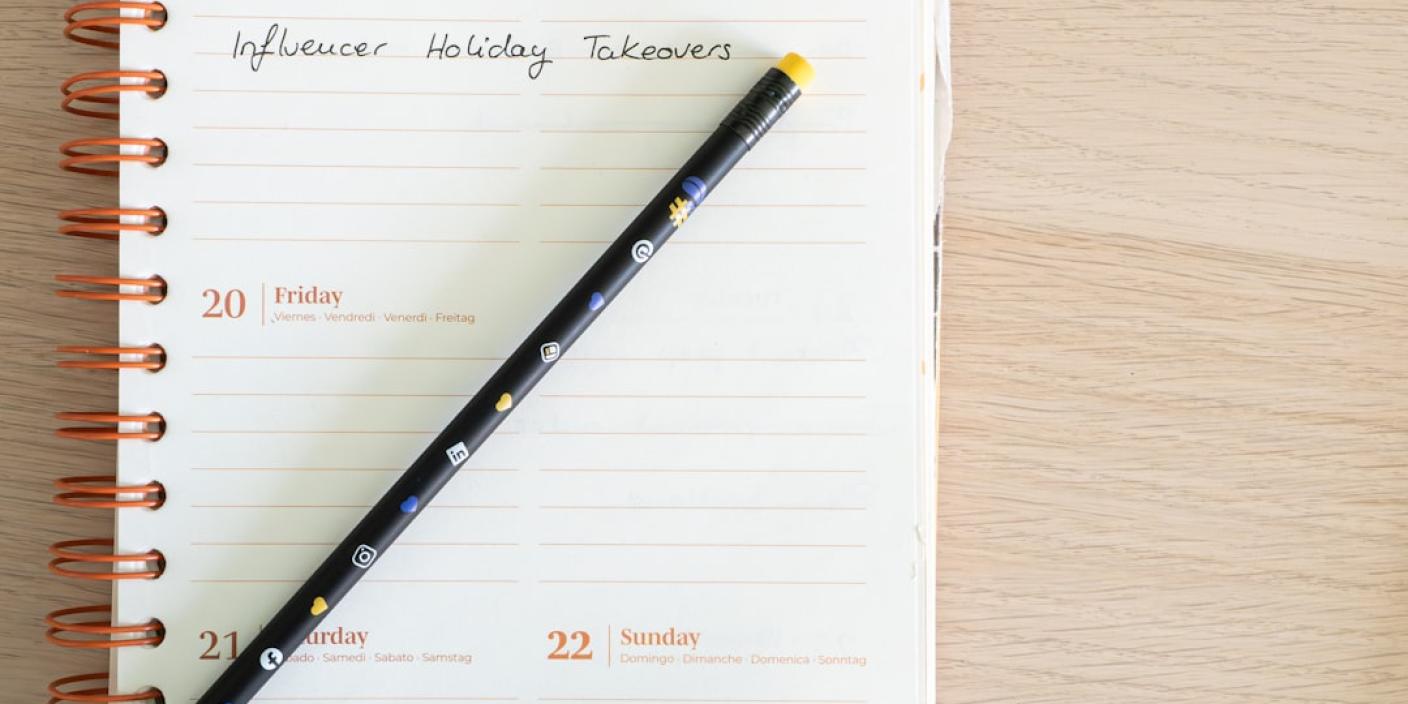 Influencer Holiday Takeovers
20 Friday
Viernes · Vendredi · Venerdì · Freitag
#
in
21 22 Sunday
Samedi · Sabato · Samstag Domingo · Dimanche · Domenica · Sonntag